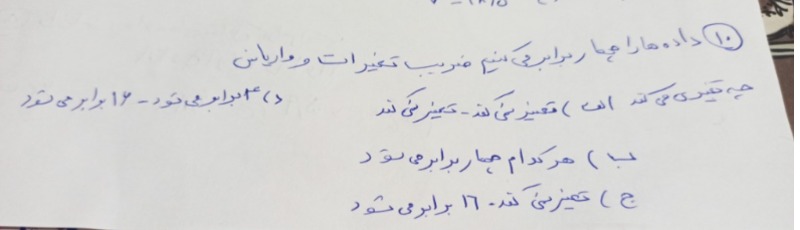 ۱۰) داده ها را چهار برابر می کنیم ضریب تغییرات و واریانس
چه تغییری می کند الف) تغییر نمی کند - تغییر نمی کند د) ۴ برابر می شود - ۱۶ برابر می شود
ب) هر کدام چهار برابر می شود
ج) تغییر نمی کند - ۱۶ برابر می شود